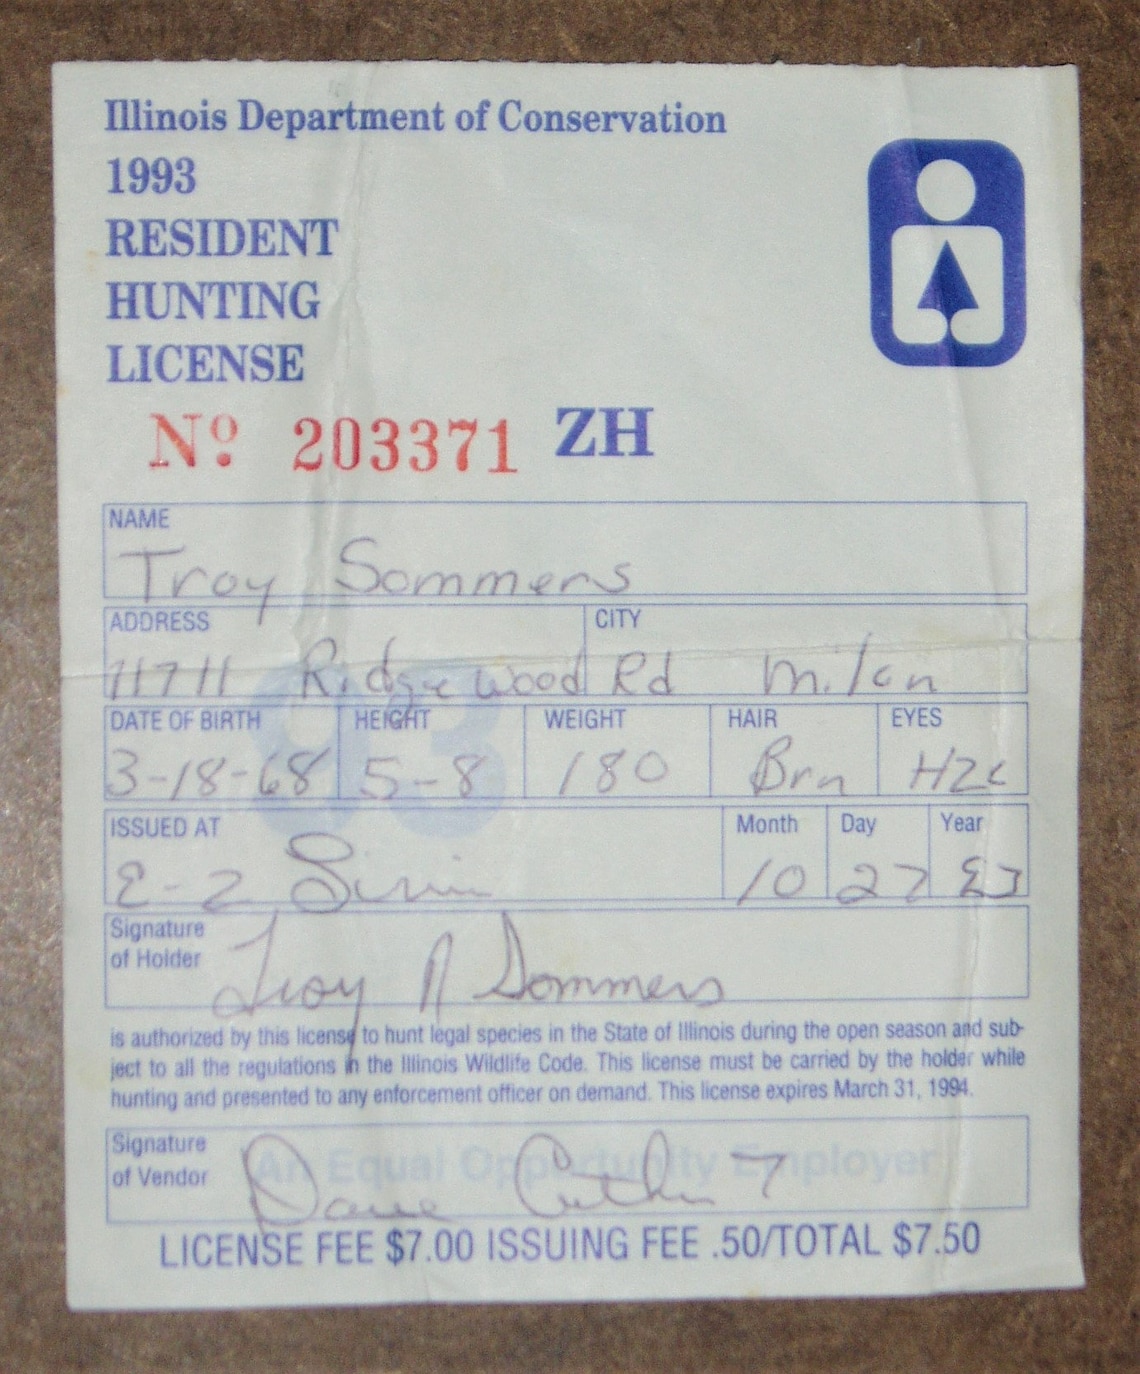 Illinois Department of Conservation
1993
RESIDENT
HUNTING
LICENSE
Nº 203371 ZH
NAME
Troy Sommers
ADDRESS CITY
11711 Ridgewood Rd Milan
DATE OF BIRTH HEIGHT WEIGHT HAIR EYES
3-18-68 5-8 180 Brn HZL
93
ISSUED AT Month Day Year
E-Z 10 27
Signature
of Holder
Troy A Sommers
is authorized by this license to hunt legal species in the State of Illinois during the open season and sub-
ject to all the regulations in the Illinois Wildlife Code. This license must be carried by the holder while
hunting and presented to any enforcement officer on demand. This license expires March 31, 1994.
Signature
of Vendor
An Equal Opportunity Employer
Dave
LICENSE FEE $7.00 ISSUING FEE .50/TOTAL $7.50